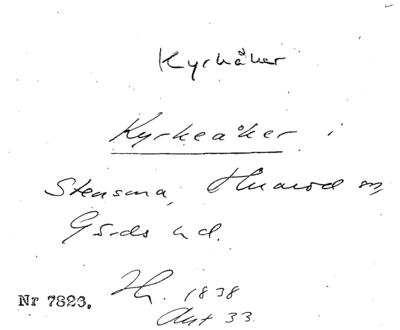 Kyrkåker
Kyrkeåker i
Stensma, Huarod sn,
Gärds hd.
Nr 7823. Lh. 1838
Akt 33.